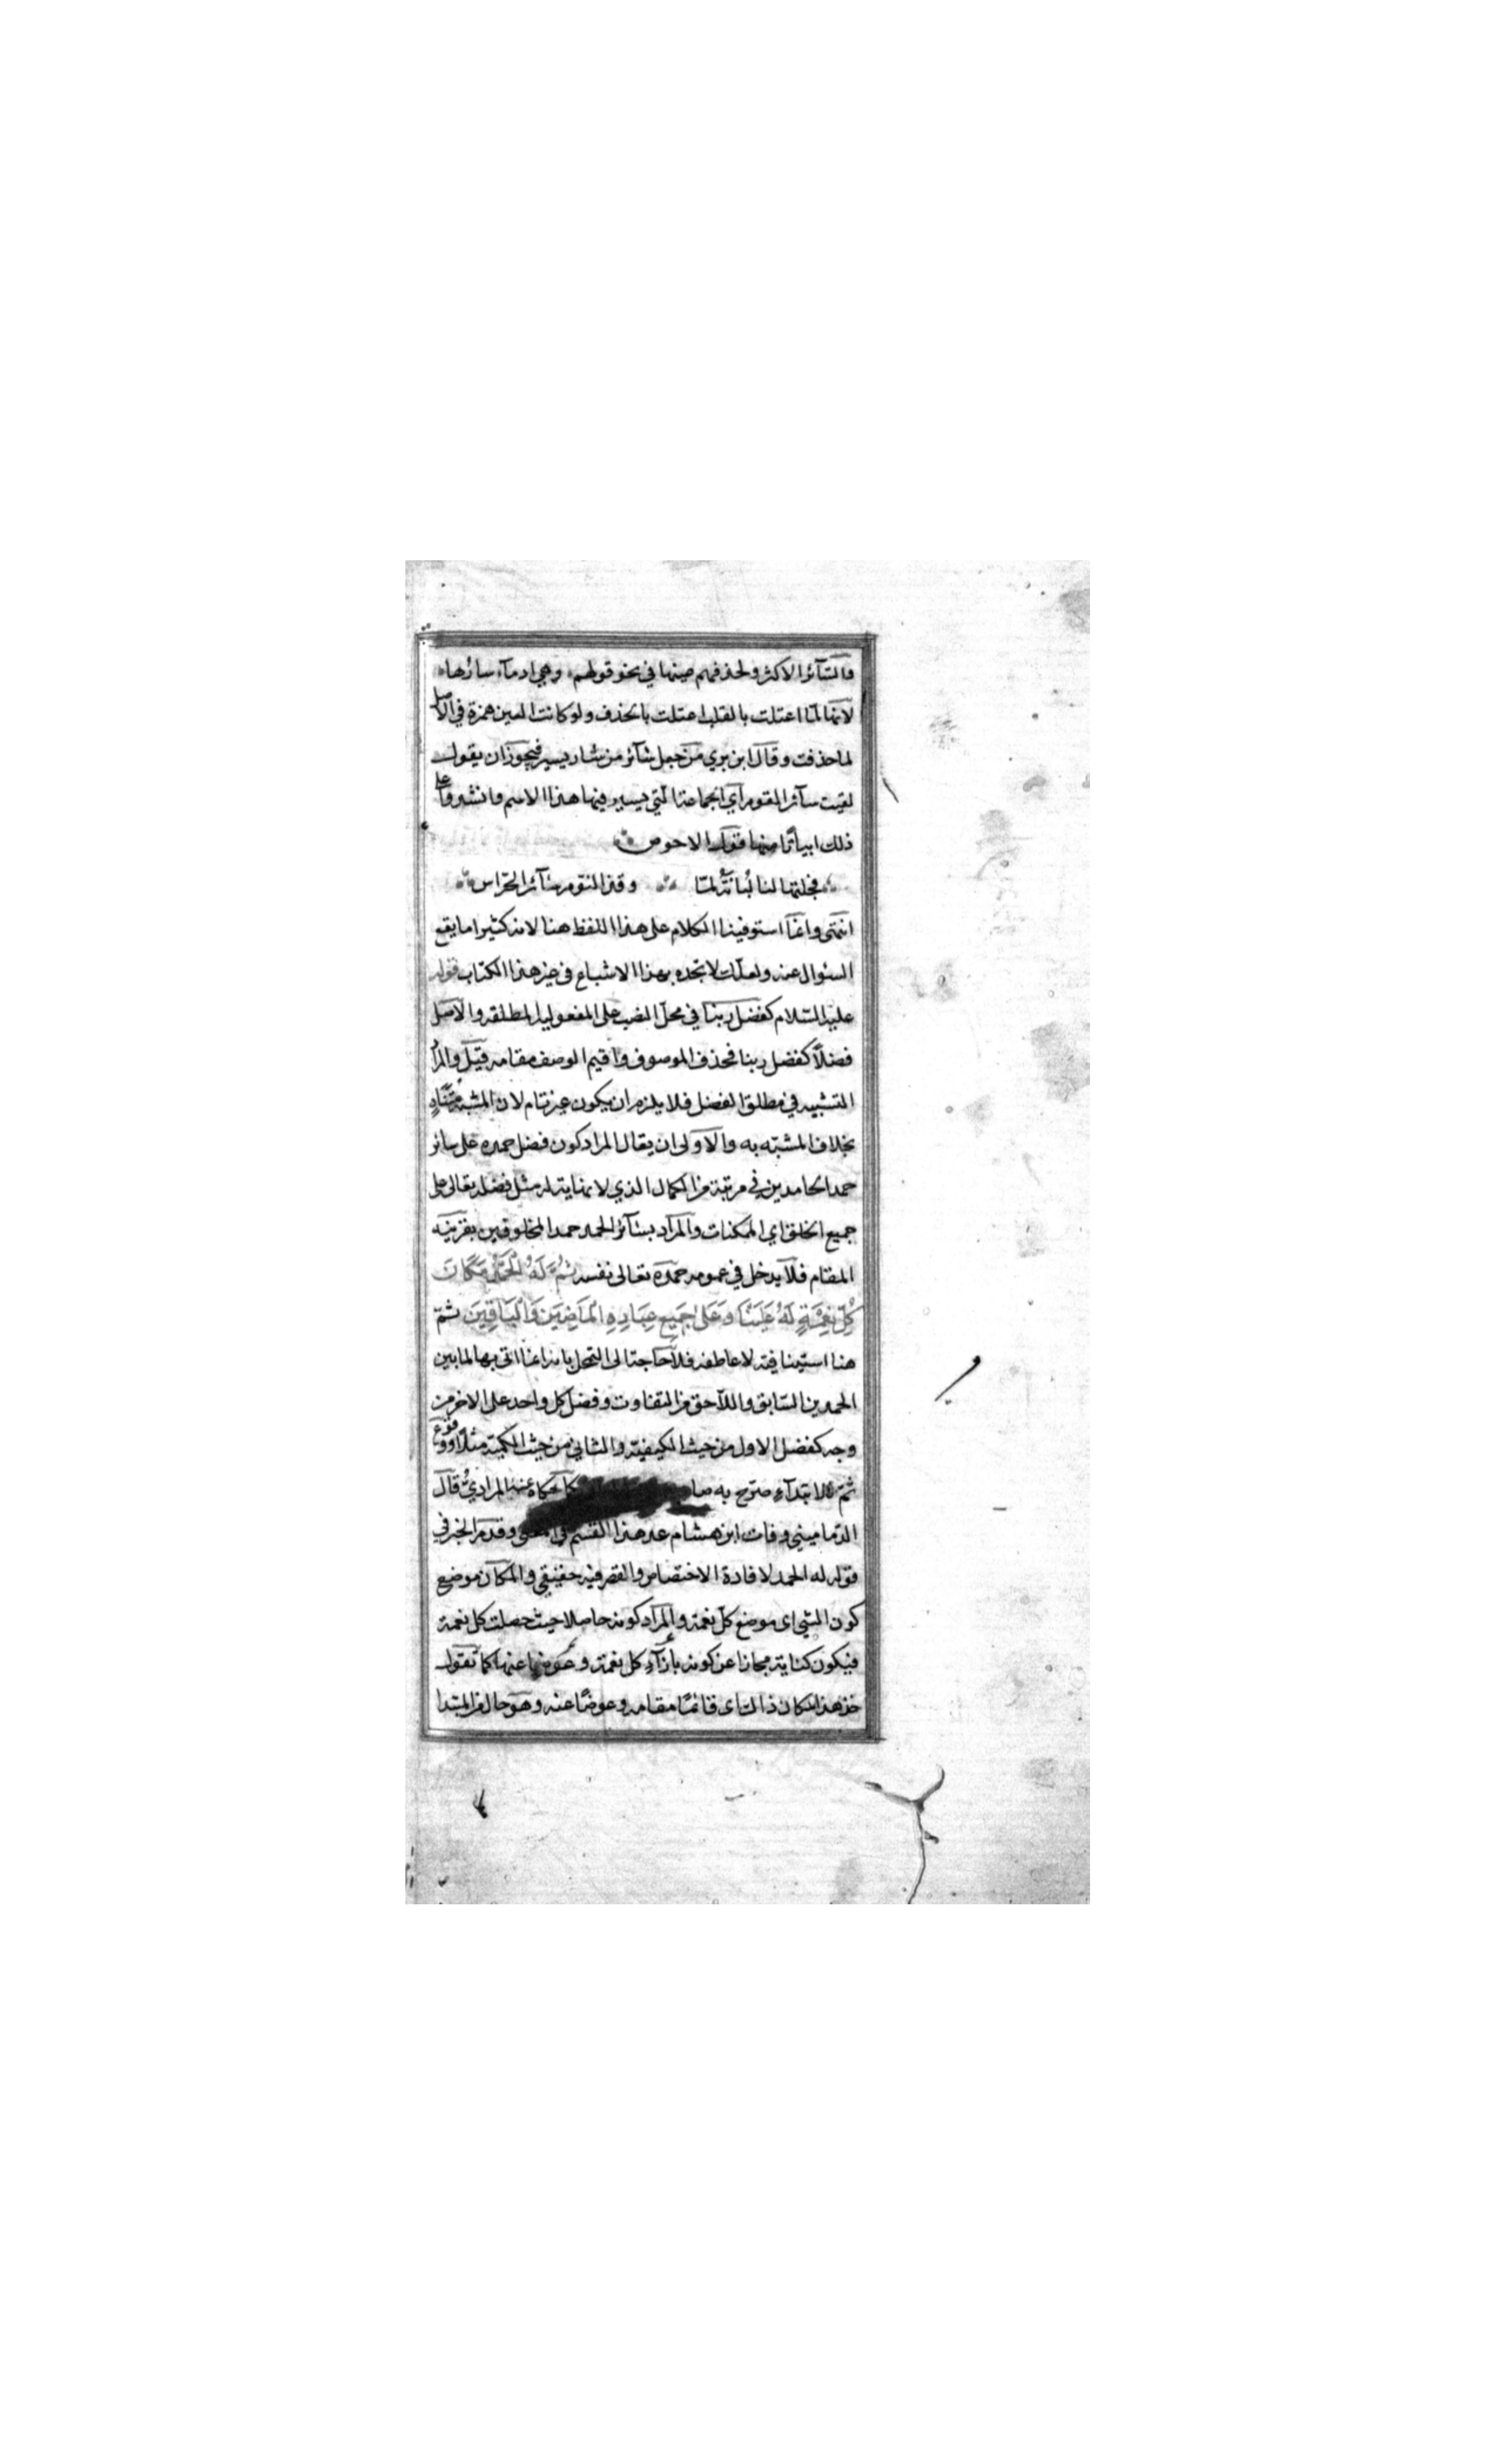 والسائر الاكثر ولحذفهم عينها في نحو قولهم وهي ادماء سارها
لانها لما اعتلت بالقلب اعتلت بالحذف ولو كانت العين همزة في الاصل
لما حذفت وقال ابن بري من جعل سائر من سار يسير فيجوز ان يقول
لقيت سائر القوم اي الجماعة التي يسير فيها هذا الاسم وانشدوا على
ذلك ابياتا منها قول الاحوص
فجلتها لنا لبانة لما وقذ النوم سائر الحراس
انتهى وانما استوفينا الكلام على هذا اللفظ هنا لانه كثيرا ما يقع
السئوال عنه ولعلك لا تجده بهذا الاشباع في غير هذا الكتاب قوله
عليه السلام كفضل ربنا في محل النصب على المفعولية المطلقه والاصل
فضلا كفضل ربنا فحذف الموصوف واقيم الوصف مقامه قيل والمراد
التشبيه في مطلق الفضل فلا يلزم ان يكون غير تام لان المشبه متناه
بخلاف المشبه به والاولى ان يقال المراد كون فضل حمده على سائر
حمد الحامدين في مرتبة من الكمال الذي لا نهاية له مثل فضله تعالى على
جميع الخلق اي الممكنات والمراد بسائر الحمد حمد المخلوقين بقرينه
المقام فلا يدخل في عمومه حمده تعالى نفسه ثُمَّ لَهُ الْحَمْدُ مَكَانَ
كُلِّ نِعْمَةٍ لَهُ عَلَيْنَا وَعَلَى جَمِيعِ عِبَادِهِ الْمَاضِينَ وَالْبَاقِينَ ثم
هنا استينافية لا عاطفه فلا حاجة الى التمحل بانه انما اتى بها لما بين
الحمدين السابق واللاحق من التفاوت وفضل كل واحد على الاخر من
وجه كفضل الاول من حيث الكيفية والثاني من حيث الكمية مثلا ووقوع
ثم للابتداء صرح به صا كما حكاه عنه المرادي قال
الدماميني وفات ابن هشام عد هذا القسم في المغنى وقدم الخبر في
قوله له الحمد لافادة الاختصاص والقصر فيه حقيقي والمكان موضع
كون الشي اى موضع كل نعمة والمراد كونه حاصلا حيث حصلت كل نعمة
فيكون كناية مجازا عن كونه بأزاء كل نعمة وعوضا عنها كما تقول
خذ هذا مكان ذاك اى قائمًا مقامه وعوضًا عنه وهو حال من المبتدا